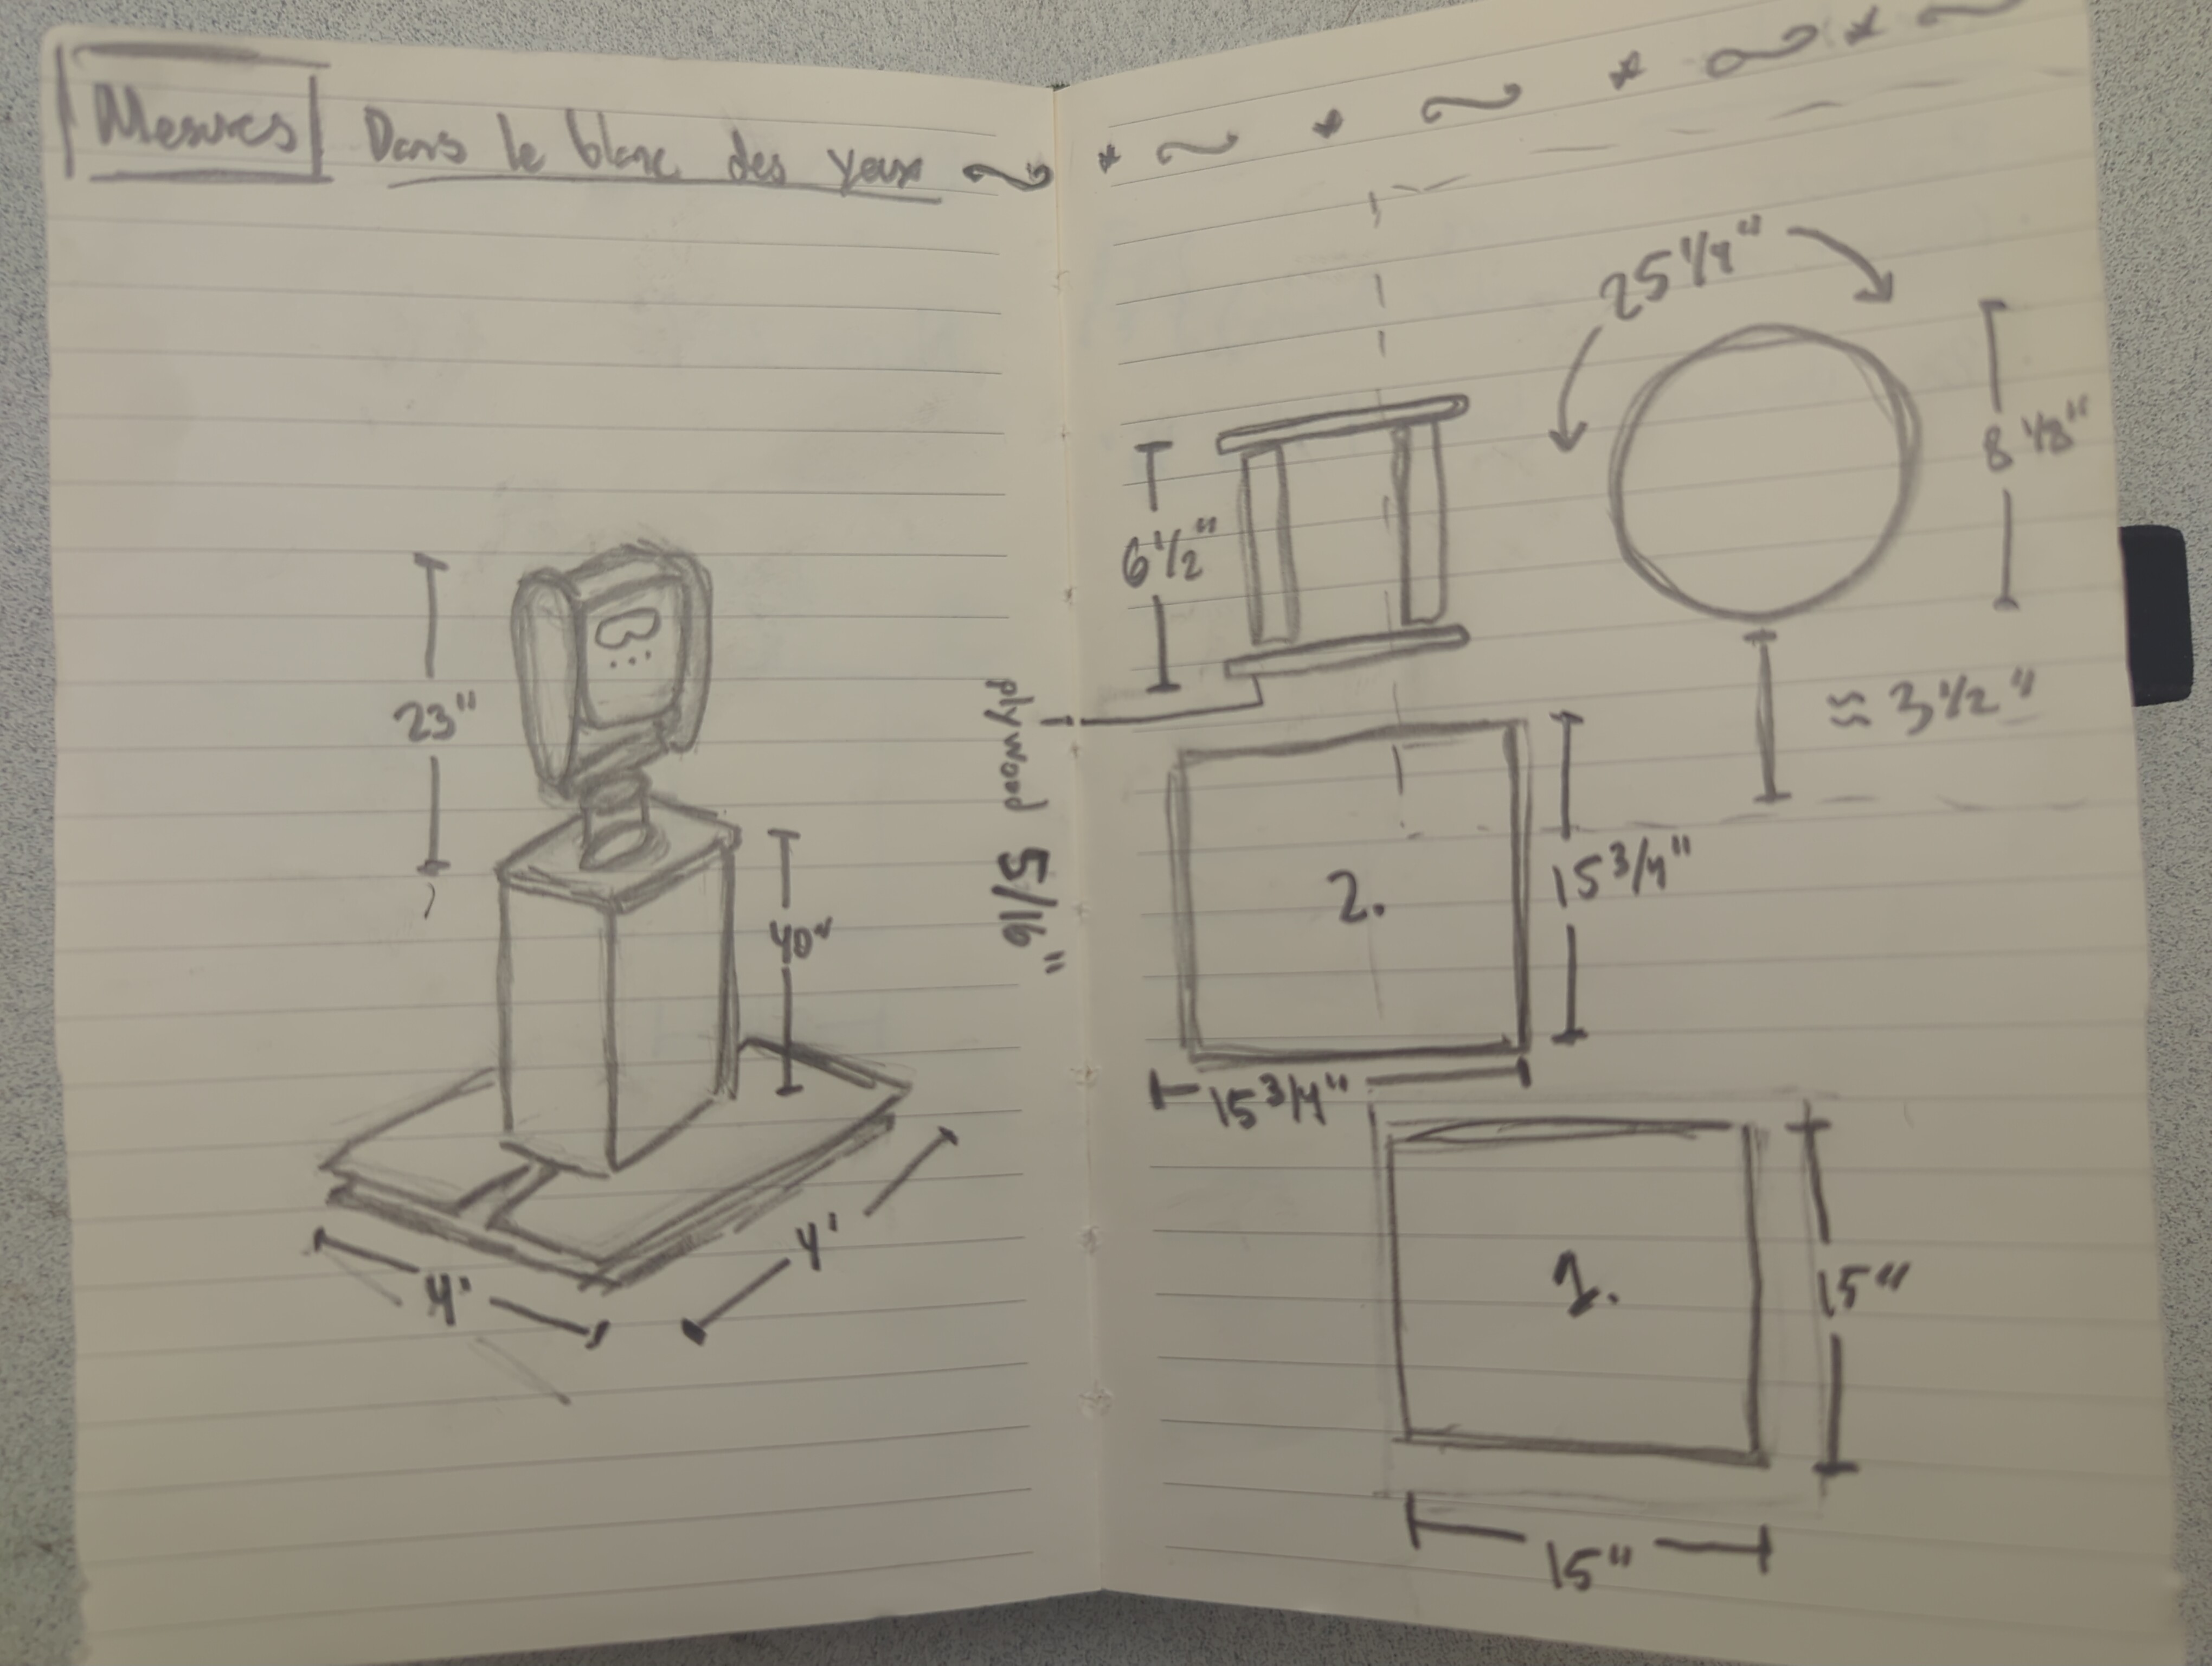 Mesures Dans le blanc des yeux
23"
40"
4'
4'
plywood 5/16"
25 1/4"
8 1/8"
6 1/2"
≈ 3 1/2"
2.
15 3/4"
15 3/4"
1.
15"
15"